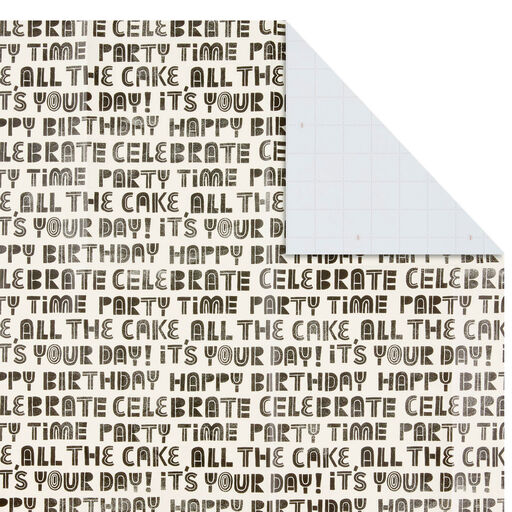 ELEBRATE CELEBRATE CELE
TY TiME PARTY TiME PARTY
E ALL THE CAKE ALL THE
T'S YOUR DAY! iT'S YOUR D
PPY BIRTHDAY HAPPY B
LEBRATE CELEBRATE CE
TiME PARTY TiME PAR
E ALL THE CAKE ALL T
T'S YOUR DAY! iT'S YOU
PY BIRTHDAY HAPPY BIR
EBRATE CELEBRATE CELEBRATE CELE
TY TiME PARTY TiME PARTY TiME P
E ALL THE CAKE ALL THE CAKE ALL THE
T'S YOUR DAY! iT'S YOUR DAY! iT'S YOUR
Y BIRTHDAY HAPPY BIRTHDAY HAPPY B
CELEBRATE CELEBRATE CELEBRATE CEL
TY TiME PARTY TiME PARTY TiME PA
E ALL THE CAKE ALL THE CAKE ALL THE
iT'S YOUR DAY! iT'S YOUR DAY! iT'S YOU
PY BIRTHDAY HAPPY BIRTHDAY HAPPY